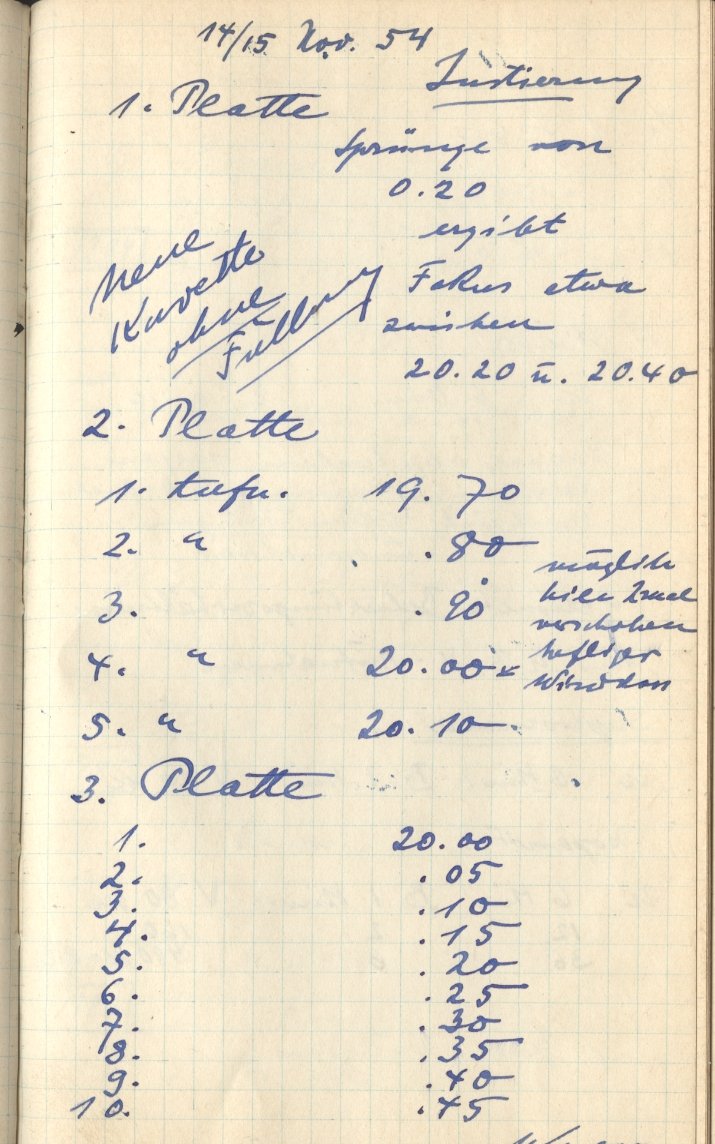 14/15 Nov. 54
Justierung
1. Platte
Sprünge von
0.20
ergibt
Neue
Kuvette
ohne
Füllung
Fokus etwa
zwischen
20.20 u. 20.40
2. Platte
1. Aufn. 19.70
2. " .80
3. .90
4. " 20.00 x
möglich
hier 2mal
verschoben
heftiger
5. " 20.10
3. Platte
1. 20.00
2. .05
3. .10
4. .15
5. .20
6. .25
7. .30
8. .35
9. .40
10. .45